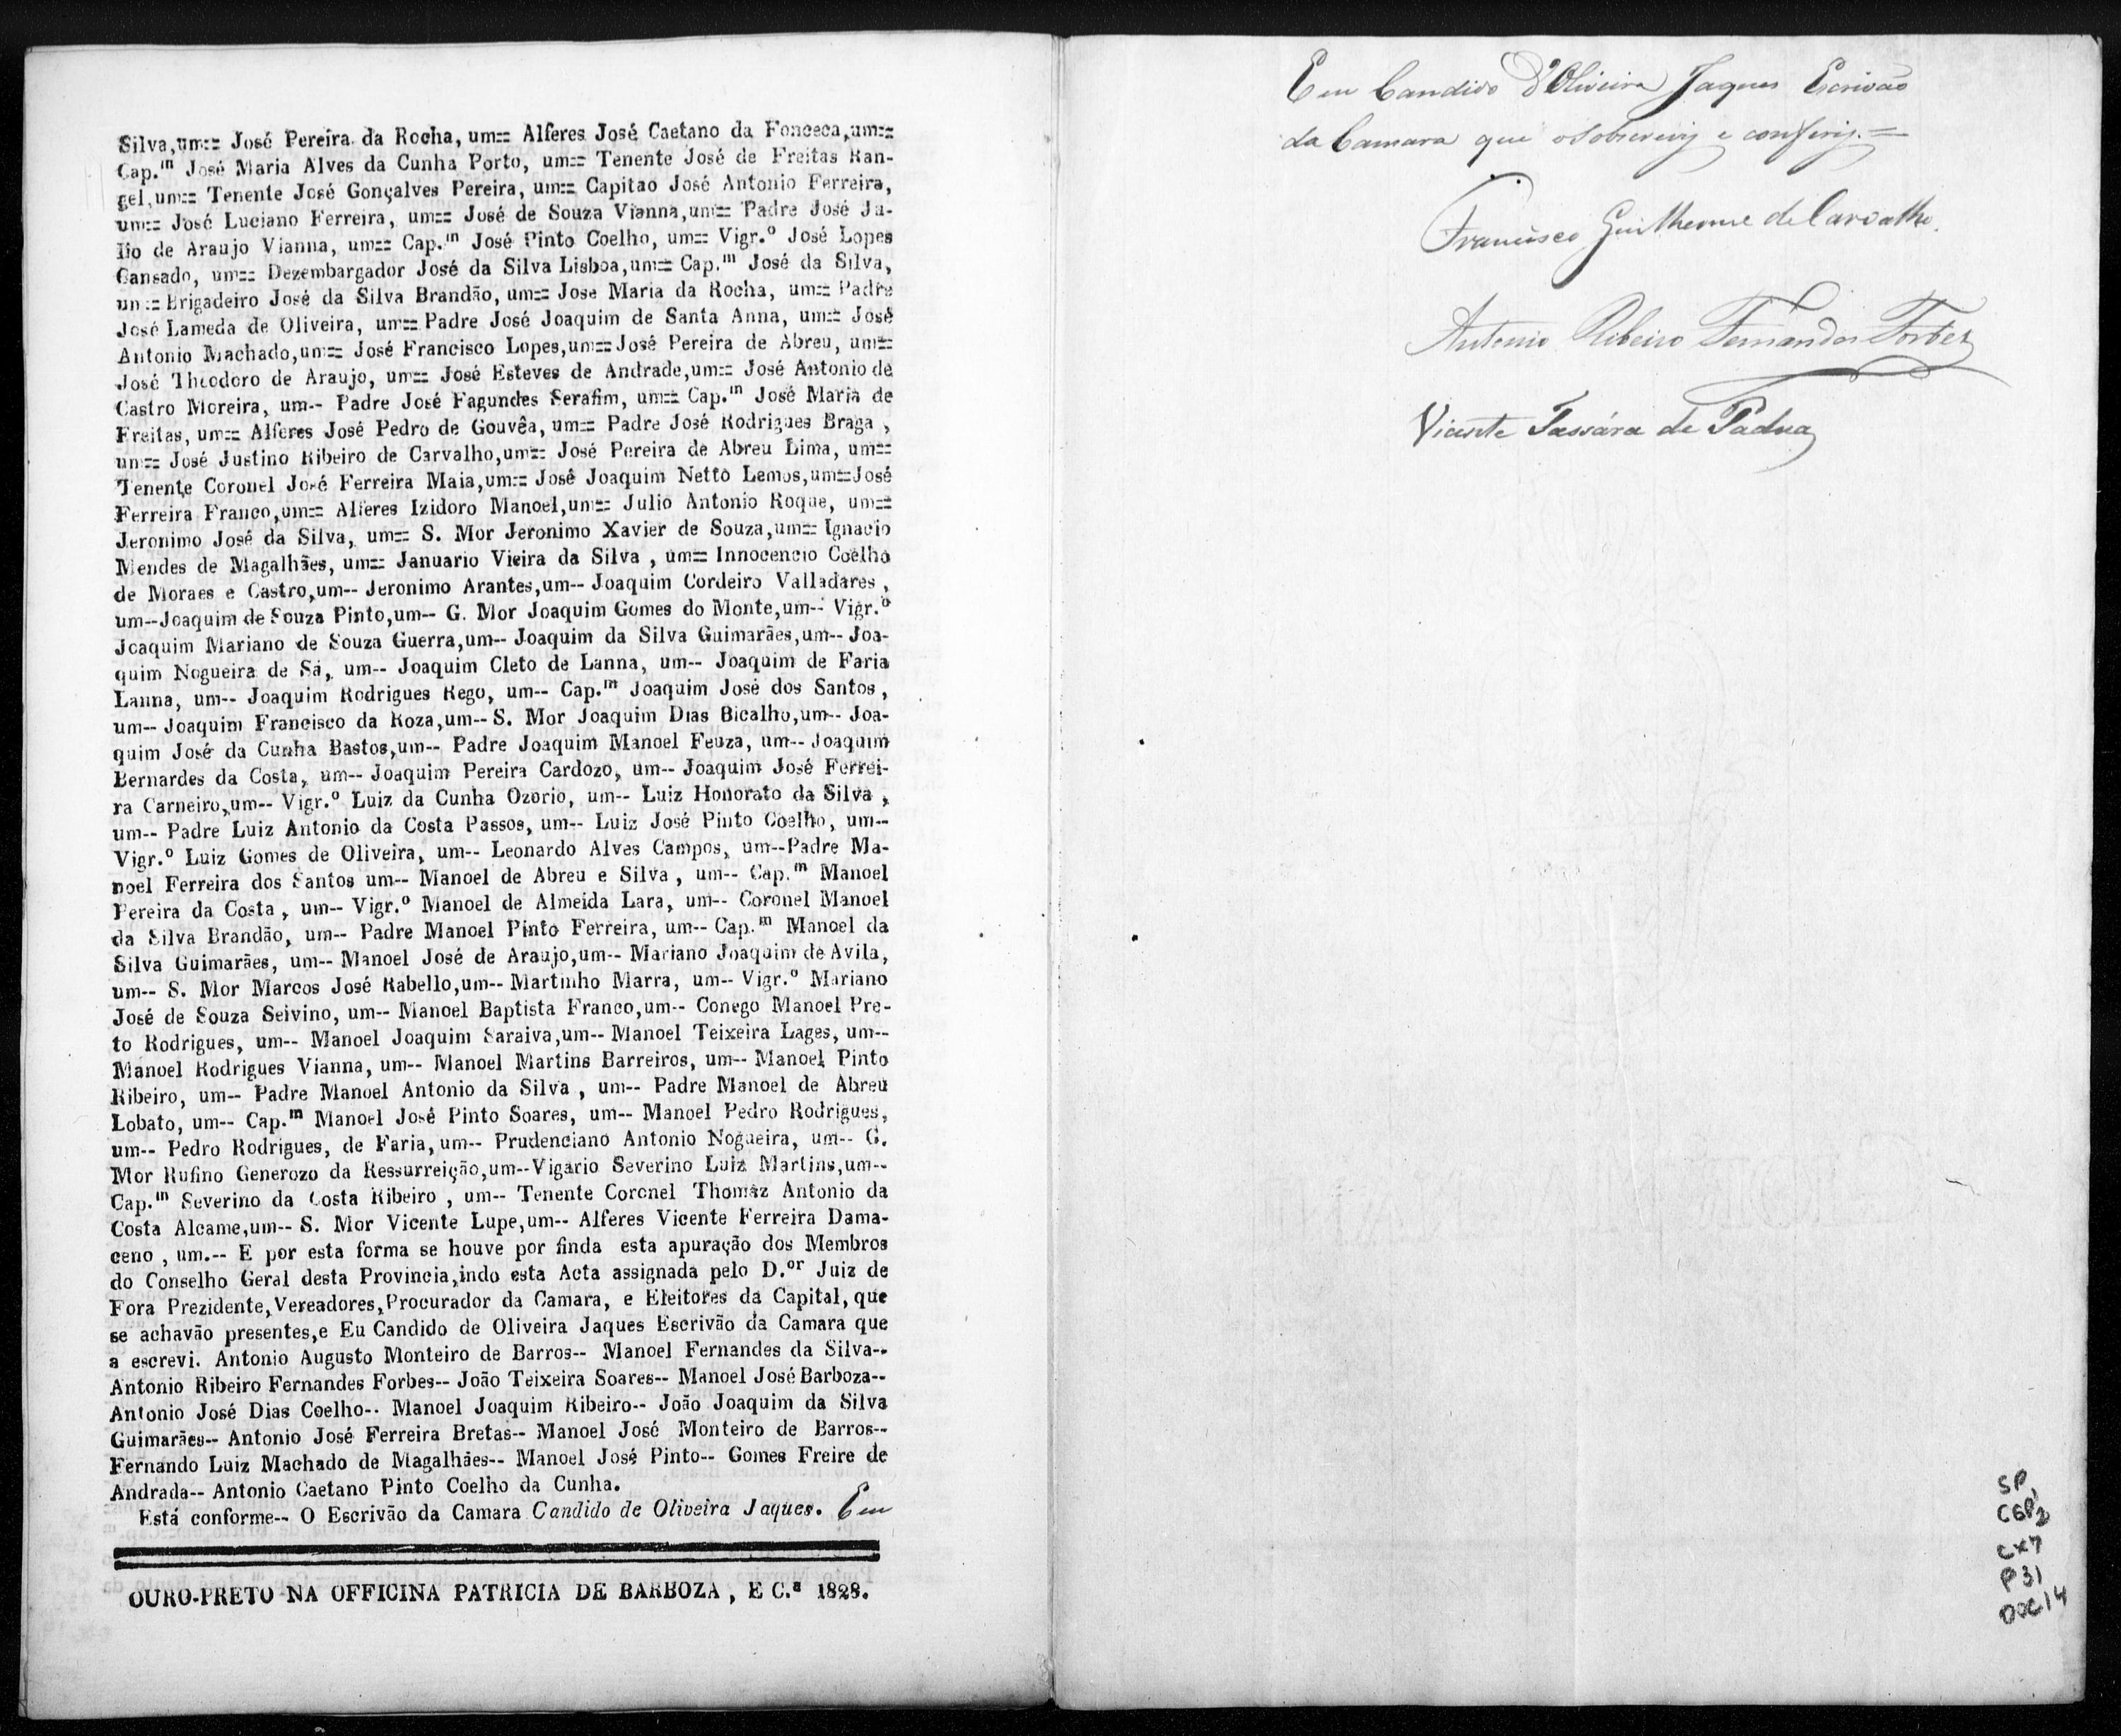 Silva,um== José Pereira da Rocha, um== Alferes José Caetano da Fonceca,um==
Cap.m José Maria Alves da Cunha Porto, um== Tenente José de Freitas Ran-
gel,um== Tenente José Gonçalves Pereira, um== Capitao José Antonio Ferreira,
um== José Luciano Ferreira, um== José de Souza Vianna,um== Padre José Ju-
lio de Araujo Vianna, um== Cap.m José Pinto Coelho, um== Vigr.º José Lopes
Cansado, um== Dezembargador José da Silva Lisboa,um== Cap.m José da Silva,
um== Brigadeiro José da Silva Brandão, um== Jose Maria da Rocha, um== Padre
José Lameda de Oliveira, um== Padre José Joaquim de Santa Anna, um== José
Antonio Machado,um== José Francisco Lopes,um== José Pereira de Abreu, um==
José Theodoro de Araujo, um== José Esteves de Andrade,um== José Antonio de
Castro Moreira, um-- Padre José Fagundes Serafim, um== Cap.m José Maria de
Freitas, um== Alferes José Pedro de Gouvêa, um== Padre José Rodrigues Braga ,
um== José Justino Ribeiro de Carvalho,um== José Pereira de Abreu Lima, um==
Tenente Coronel José Ferreira Maia,um== José Joaquim Netto Lemos,um==José
Ferreira Franco,um== Alferes Izidoro Manoel,um== Julio Antonio Roque, um==
Jeronimo José da Silva, um== S. Mor Jeronimo Xavier de Souza,um== Ignacio
Mendes de Magalhães, um== Januario Vieira da Silva , um== Innocencio Coelho
de Moraes e Castro,um-- Jeronimo Arantes,um-- Joaquim Cordeiro Valladares ,
um--Joaquim de Souza Pinto,um-- G. Mor Joaquim Gomes do Monte,um-- Vigr.º
Joaquim Mariano de Souza Guerra,um-- Joaquim da Silva Guimarães,um-- Joa-
quim Nogueira de Sá, um-- Joaquim Cleto de Lanna, um-- Joaquim de Faria
Lanna, um-- Joaquim Rodrigues Rego, um-- Cap.m Joaquim José dos Santos ,
um-- Joaquim Francisco da Roza,um-- S. Mor Joaquim Dias Bicalho,um-- Joa-
quim José da Cunha Bastos,um-- Padre Joaquim Manoel Feuza, um-- Joaquim
Bernardes da Costa, um-- Joaquim Pereira Cardozo, um-- Joaquim José Ferrei-
ra Carneiro,um-- Vigr.º Luiz da Cunha Ozorio, um-- Luiz Honorato da Silva ,
um-- Padre Luiz Antonio da Costa Passos, um-- Luiz José Pinto Coelho, um--
Vigr.º Luiz Gomes de Oliveira, um-- Leonardo Alves Campos, um--Padre Ma-
noel Ferreira dos Santos um-- Manoel de Abreu e Silva , um-- Cap.m Manoel
Pereira da Costa , um-- Vigr.º Manoel de Almeida Lara, um-- Coronel Manoel
da Silva Brandão, um-- Padre Manoel Pinto Ferreira, um-- Cap.m Manoel da
Silva Guimarães, um-- Manoel José de Araujo,um-- Mariano Joaquim de Avila,
um-- S. Mor Marcos José Rabello,um-- Martinho Marra, um-- Vigr.º Mariano
José de Souza Seivino, um-- Manoel Baptista Franco,um-- Conego Manoel Pre-
to Rodrigues, um-- Manoel Joaquim Saraiva,um-- Manoel Teixeira Lages, um--
Manoel Rodrigues Vianna, um-- Manoel Martins Barreiros, um-- Manoel Pinto
Ribeiro, um-- Padre Manoel Antonio da Silva , um-- Padre Manoel de Abreu
Lobato, um-- Cap.m Manoel José Pinto Soares, um-- Manoel Pedro Rodrigues,
um-- Pedro Rodrigues, de Faria,um-- Prudenciano Antonio Nogueira, um-- G.
Mor Rufino Generozo da Ressurreição,um--Vigario Severino Luiz Martins,um--
Cap.m Severino da Costa Ribeiro , um-- Tenente Coronel Thomaz Antonio da
Costa Alcame,um-- S. Mor Vicente Lupe,um-- Alferes Vicente Ferreira Dama-
ceno , um.-- E por esta forma se houve por finda esta apuração dos Membros
do Conselho Geral desta Provincia,indo esta Acta assignada pelo D.or Juiz de
Fora Prezidente,Vereadores,Procurador da Camara, e Eleitores da Capital, que
se achavão presentes,e Eu Candido de Oliveira Jaques Escrivão da Camara que
a escrevi. Antonio Augusto Monteiro de Barros-- Manoel Fernandes da Silva--
Antonio Ribeiro Fernandes Forbes-- João Teixeira Soares-- Manoel José Barboza--
Antonio José Dias Coelho-- Manoel Joaquim Ribeiro-- João Joaquim da Silva
Guimarães-- Antonio José Ferreira Bretas-- Manoel José Monteiro de Barros--
Fernando Luiz Machado de Magalhães-- Manoel José Pinto-- Gomes Freire de
Andrada-- Antonio Caetano Pinto Coelho da Cunha.
Está conforme-- O Escrivão da Camara Candido de Oliveira Jaques. Eeu
OURO-PRETO NA OFFICINA PATRICIA DE BARBOZA , E C.ª 1828.
E eu Candido d'Oliveira Jaques Escrivão
da Camara que o sobscrevij e conferij. =
Francisco Guilherme de Carvalho.
Antonio Ribeiro Fernandes Forbes
Vicente Tassára de Padua
SP,
CGP2
CX7
P31
DOC14